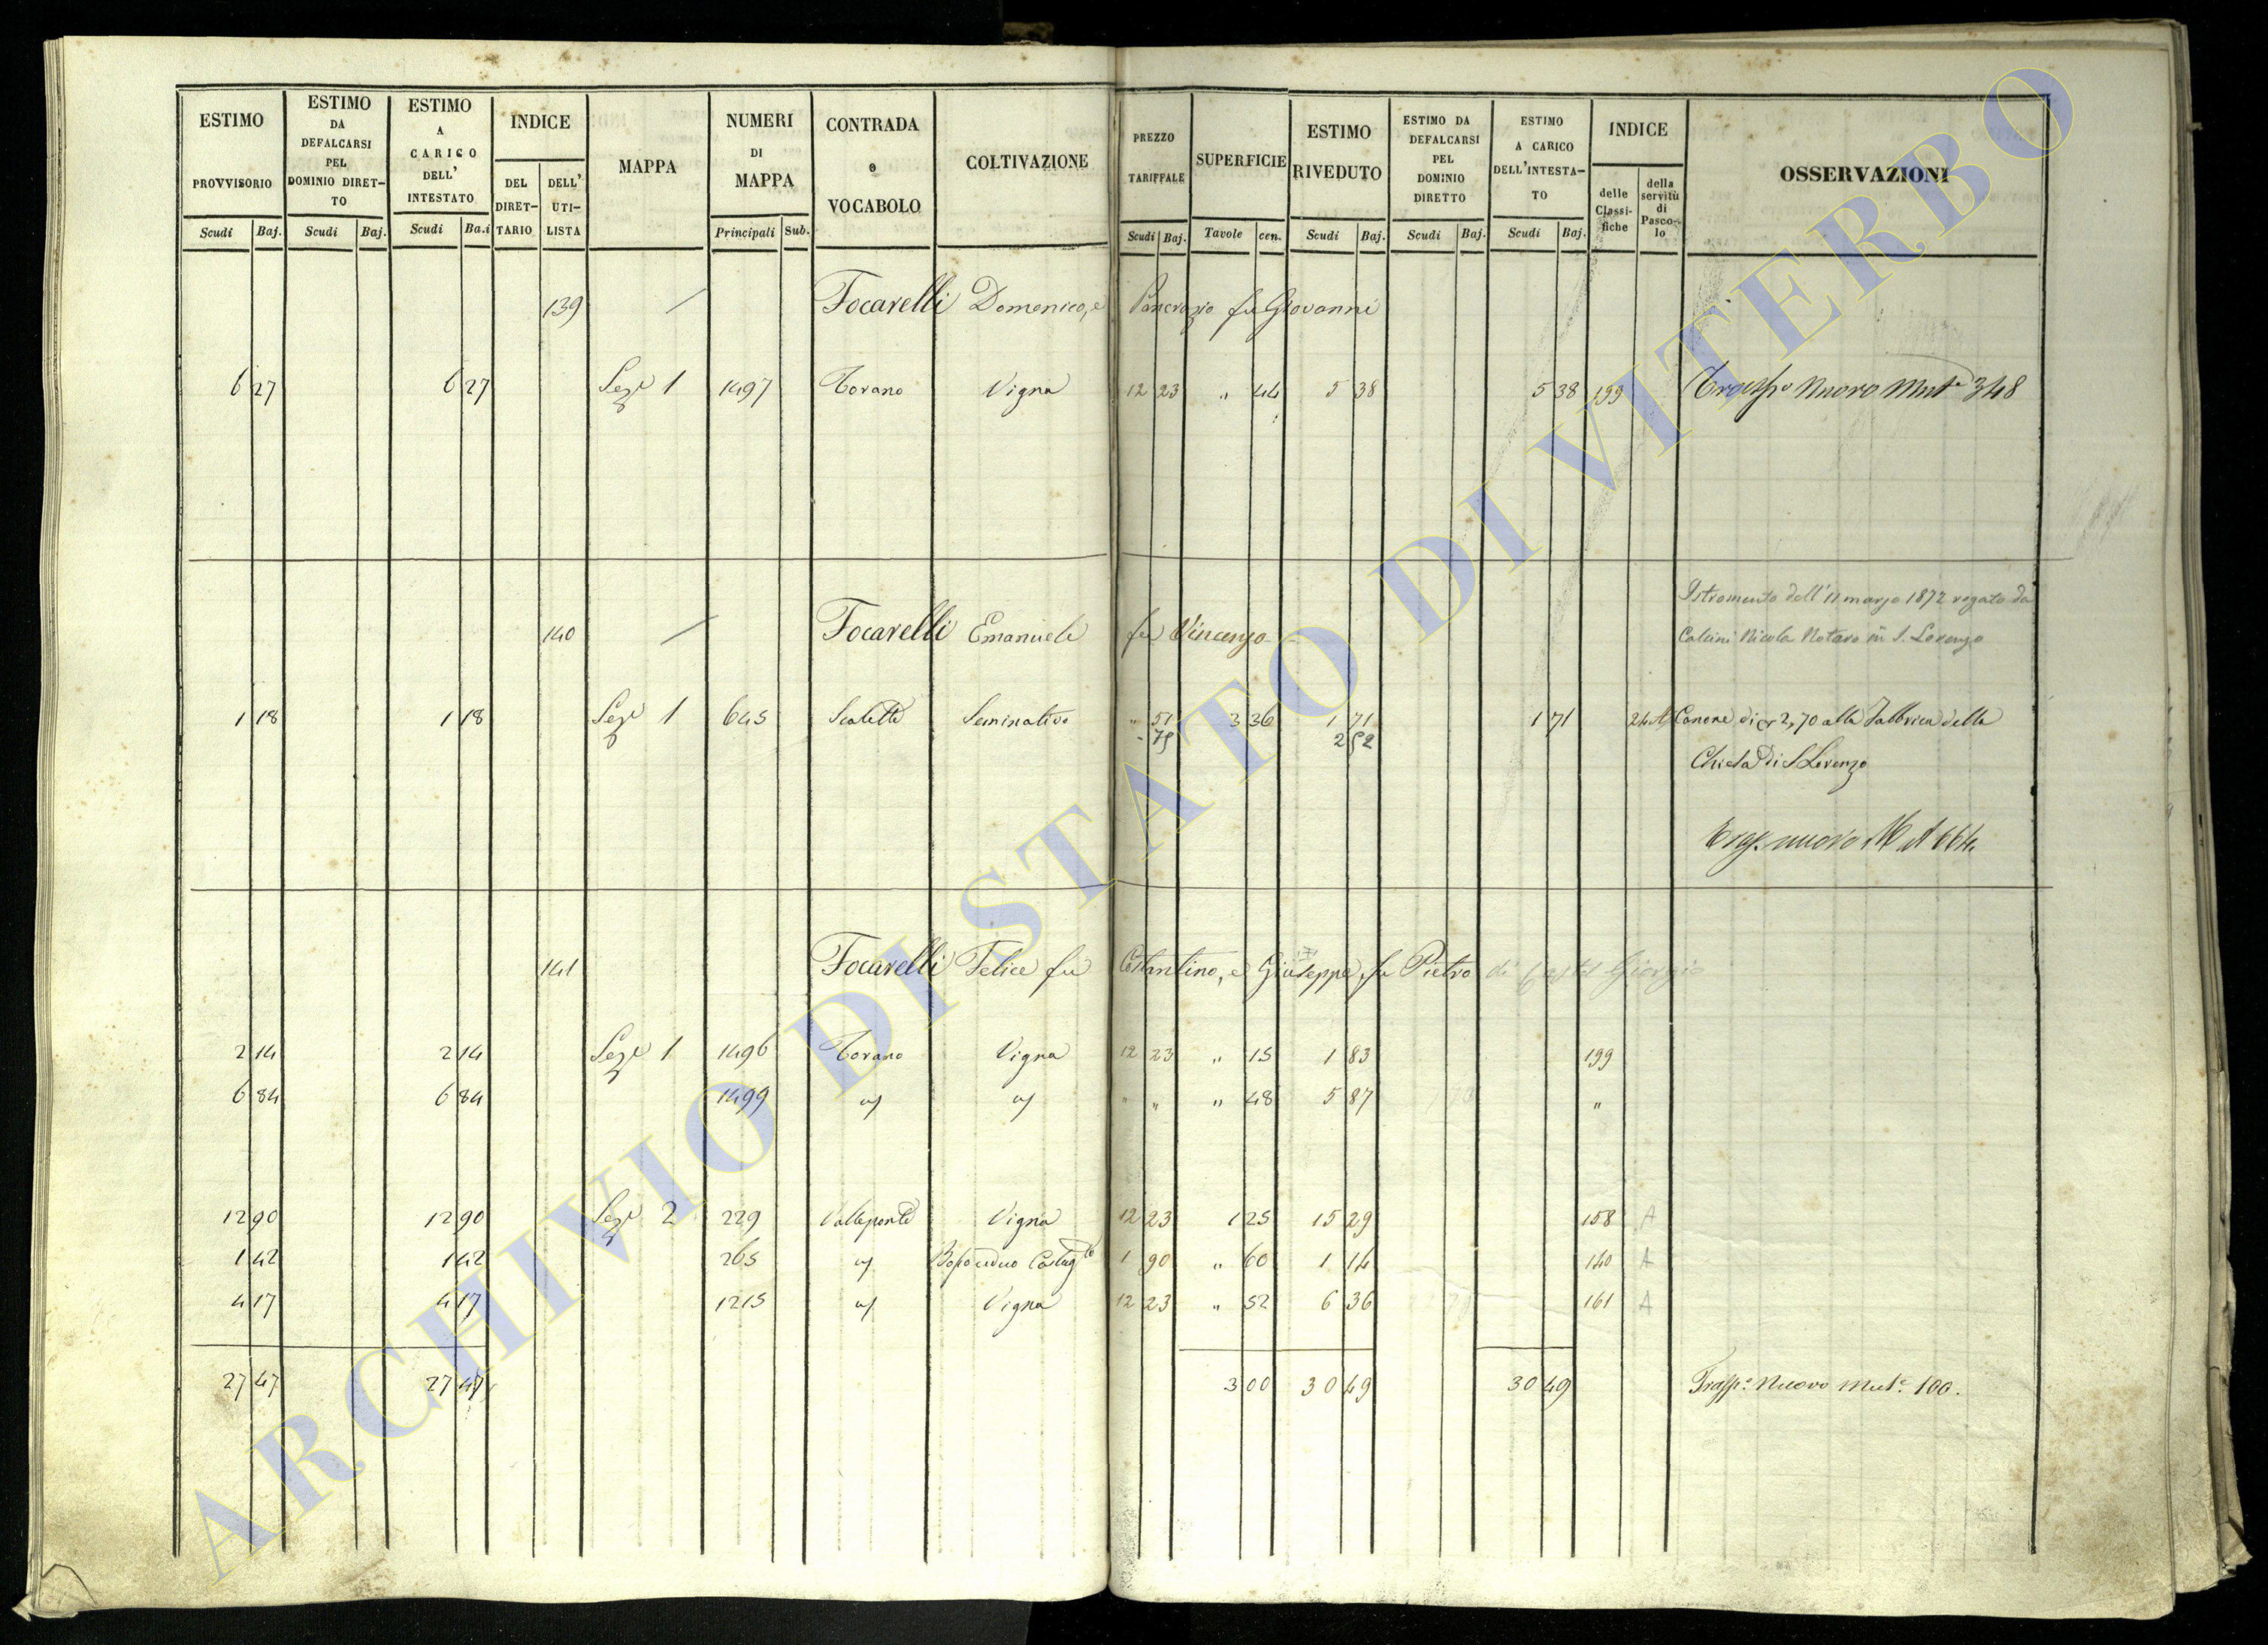 ESTIMO PROVVISORIO
ESTIMO DA DEFALCARSI PEL DOMINIO DIRET-TO
ESTIMO A CARICO DELL' INTESTATO
INDICE
DEL DIRET-TARIO
DELL' UTI-LISTA
MAPPA
NUMERI DI MAPPA
CONTRADA e VOCABOLO
COLTIVAZIONE
PREZZO TARIFFALE
SUPERFICIE
ESTIMO RIVEDUTO
ESTIMO DA DEFALCARSI PEL DOMINIO DIRETTO
ESTIMO A CARICO DELL'INTESTA-TO
INDICE
delle Classi-fiche
della servitù di Pasco-lo
OSSERVAZIONI
Scudi Baj. Scudi Baj. Scudi Ba.i Principali Sub. Scudi Baj. Tavole cen. Scudi Baj. Scudi Baj. Scudi Baj.
139 Focarelli Domenico, e Pancrazio fu Giovanni
6 27 6 27 Sez.e 1 1497 Torano Vigna 12 23 " 44 5 38 5 38 199 Trasp.o Nuovo Mut.e 348
Istromento dell'11 marzo 1872 rogato da
140 Focarelli Emanuele fu Vincenzo Calcini Nicola Notaro in S. Lorenzo
1 18 1 18 Sez.e 1 645 Scalette Seminativo " 51 3 36 1 71 1 71 24 Canone di 2,70 alla Fabbrica della
- 75 2 52
Chiesa di S Lorenzo
Trasp. nuovo 664
141 Focarelli Felice fu Costantino, e Giuseppe fu Pietro di Castel Giorgio
2 14 2 14 Sez.e 1 1496 Torano Vigna 12 23 " 15 1 83 199
6 84 6 84 1499 " " " 48 5 87 "
12 90 12 90 Sez.e 2 229 Valleponte Vigna 12 23 1 25 15 29 158 A
1 42 1 42 265 Bosco ceduo Castag.to 1 90 " 60 1 14 140 A
4 17 4 17 1215 Vigna 12 23 " 52 6 36 161 A
27 47 27 47 3 00 30 49 30 49 Trasp.o Nuovo Mut.e 100.
ARCHIVIO DI STATO DI VITERBO